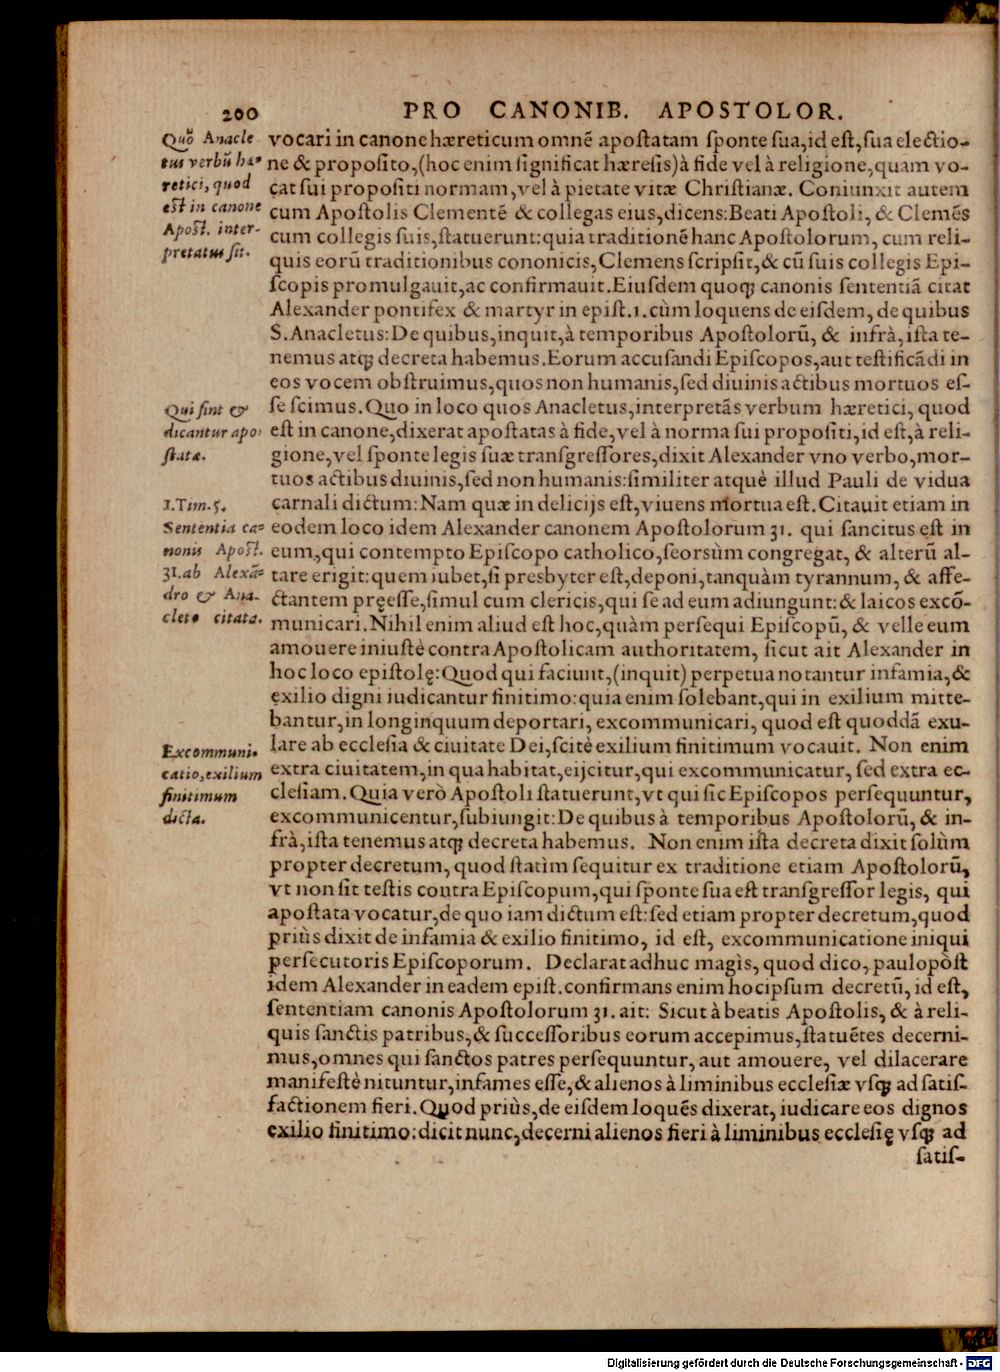 200
PRO CANONIB. APOSTOLOR.
Quō Anacle
tus verbū hæ-
retici, quod
est in canone
Apost. inter-
pretatus sit.
vocari in canone hæreticum omnē apoſtatam ſponte ſua, id eſt, ſua electio-
ne & propoſito, (hoc enim ſignificat hæreſis) à fide vel à religione, quam vo-
cat ſui propoſiti normam, vel à pietate vitæ Chriſtianæ. Coniunxit autem
cum Apoſtolis Clementē & collegas eius, dicens: Beati Apoſtoli, & Clemēs
cum collegis ſuis, ſtatuerunt: quia traditionē hanc Apoſtolorum, cum reli-
quis eorū traditionibus cononicis, Clemens ſcripſit, & cū ſuis collegis Epi-
ſcopis promulgauit, ac confirmauit. Eiuſdem quoqꝫ canonis ſententiā citat
Alexander pontifex & martyr in epiſt. 1. cùm loquens de eiſdem, de quibus
S. Anacletus: De quibus, inquit, à temporibus Apoſtolorū, & infrà, iſta te-
nemus atqꝫ decreta habemus. Eorum accuſandi Epiſcopos, aut teſtificādi in
eos vocem obſtruimus, quos non humanis, ſed diuinis actibus mortuos eſ-
Qui ſint &
dicantur apo-
ſtatæ.
ſe ſcimus. Quo in loco quos Anacletus, interpretās verbum hæretici, quod
eſt in canone, dixerat apoſtatas à fide, vel à norma ſui propoſiti, id eſt, à reli-
gione, vel ſponte legis ſuæ tranſgreſſores, dixit Alexander vno verbo, mor-
tuos actibus diuinis, ſed non humanis: ſimiliter atquè illud Pauli de vidua
1. Tim. 5.
Sententia ca-
nonis Apoſt.
31. ab Alexā-
dro & Ana-
cleto citata.
carnali dictum: Nam quæ in delicijs eſt, viuens mortua eſt. Citauit etiam in
eodem loco idem Alexander canonem Apoſtolorum 31. qui ſancitus eſt in
eum, qui contempto Epiſcopo catholico, ſeorsùm congregat, & alterū al-
tare erigit: quem iubet, ſi presbyter eſt, deponi, tanquàm tyrannum, & affe-
ctantem pręeſſe, ſimul cum clericis, qui ſe ad eum adiungunt: & laicos excō-
municari. Nihil enim aliud eſt hoc, quàm perſequi Epiſcopū, & velle eum
amouere iniuſtè contra Apoſtolicam authoritatem, ſicut ait Alexander in
hoc loco epiſtolę: Quod qui faciunt, (inquit) perpetua notantur infamia, &
exilio digni iudicantur finitimo: quia enim ſolebant, qui in exilium mitte-
bantur, in longinquum deportari, excommunicari, quod eſt quoddā exu-
Excommuni-
catio, exilium
finitimum
dicta.
lare ab eccleſia & ciuitate Dei, ſcitè exilium finitimum vocauit. Non enim
extra ciuitatem, in qua habitat, eijcitur, qui excommunicatur, ſed extra ec-
cleſiam. Quia verò Apoſtoli ſtatuerunt, vt qui ſic Epiſcopos perſequuntur,
excommunicentur, ſubiungit: De quibus à temporibus Apoſtolorū, & in-
frà, iſta tenemus atqꝫ decreta habemus. Non enim iſta decreta dixit ſolùm
propter decretum, quod ſtatìm ſequitur ex traditione etiam Apoſtolorū,
vt non ſit teſtis contra Epiſcopum, qui ſponte ſua eſt tranſgreſſor legis, qui
apoſtata vocatur, de quo iam dictum eſt: ſed etiam propter decretum, quod
priùs dixit de infamia & exilio finitimo, id eſt, excommunicatione iniqui
perſecutoris Epiſcoporum. Declarat adhuc magìs, quod dico, paulopòſt
idem Alexander in eadem epiſt. confirmans enim hocipſum decretū, id eſt,
ſententiam canonis Apoſtolorum 31. ait: Sicut à beatis Apoſtolis, & à reli-
quis ſanctis patribus, & ſucceſſoribus eorum accepimus, ſtatuētes decerni-
mus, omnes qui ſanctos patres perſequuntur, aut amouere, vel dilacerare
manifeſtè nituntur, infames eſſe, & alienos à liminibus eccleſiæ vſqꝫ ad ſatiſ-
factionem fieri. Quod priùs, de eiſdem loquēs dixerat, iudicare eos dignos
exilio finitimo: dicit nunc, decerni alienos fieri à liminibus eccleſię vſqꝫ ad
ſatiſ-
Digitalisierung gefördert durch die Deutsche Forschungsgemeinschaft - DFG